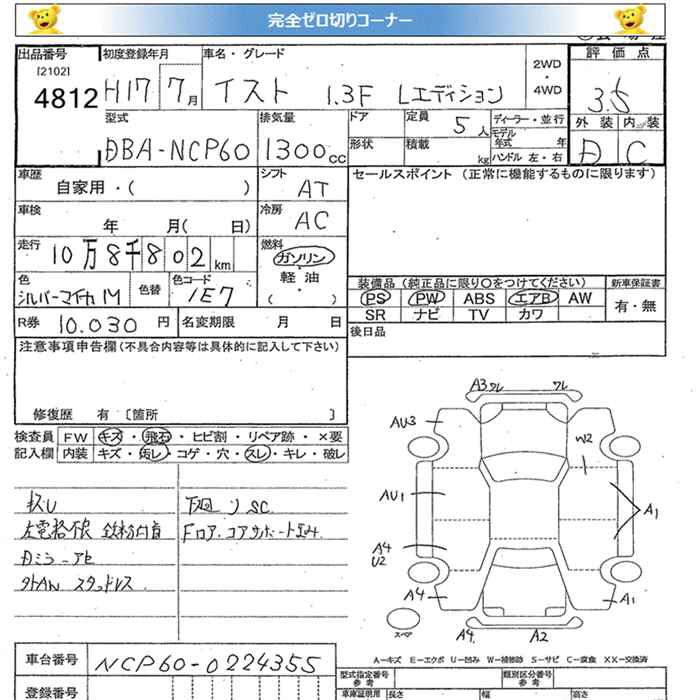 完全ゼロ切りコーナー
出品番号
[2102]
4812
初度登録年月
H17 7月
車名・グレード
イスト 1.3F Lエディション
2WD
・
4WD
評価点
3.5
外装 内装
D C
型式
DBA-NCP60
排気量
1300cc
ドア
定員 5人
形状
積載 kg
ディーラー・並行
モデル年式 年
ハンドル 左・右
車歴
自家用・( )
シフト
AT
セールスポイント(正常に機能するものに限ります)
車検
年 月( 日)
冷房
AC
走行
10万8千802km
燃料
ガソリン
軽油
( ・ )
色
シルバーマイカM
色替
色コード
1E7
装備品(純正品に限り○をつけてください)
PS PW ABS エアB AW
SR ナビ TV カワ
新車保証書
有・無
R券 10,030円
名変期限 月 日
後日品
注意事項申告欄(不具合内容等は具体的に記入して下さい)
修復歴 有〔箇所 〕
検査員記入欄
FW キズ・飛石・ヒビ割・リペア跡・×要
内装 キズ・汚レ・コゲ・穴・スレ・キレ・破レ
下廻りSC
Dミラーアセ
スタッドレス
A3 ワレ ワレ
AU3
W2
AU1
A1
A4
U2
A4
A1
スペア
A4 A2
A-キズ E-エクボ U-凹み W-補修跡 S-サビ C-腐食 XX-交換済
車台番号 NCP60-0224355
登録番号
型式指定番号
参考
類別区分番号
参考
車庫証明用 長さ 幅 高さ